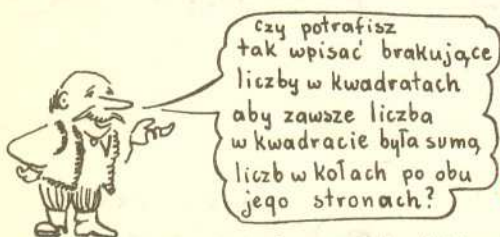 Czy potrafisz
tak wpisać brakujące
liczby w kwadratach
aby zawsze liczba
w kwadracie była sumą
liczb w kołach po obu
jego stronach?